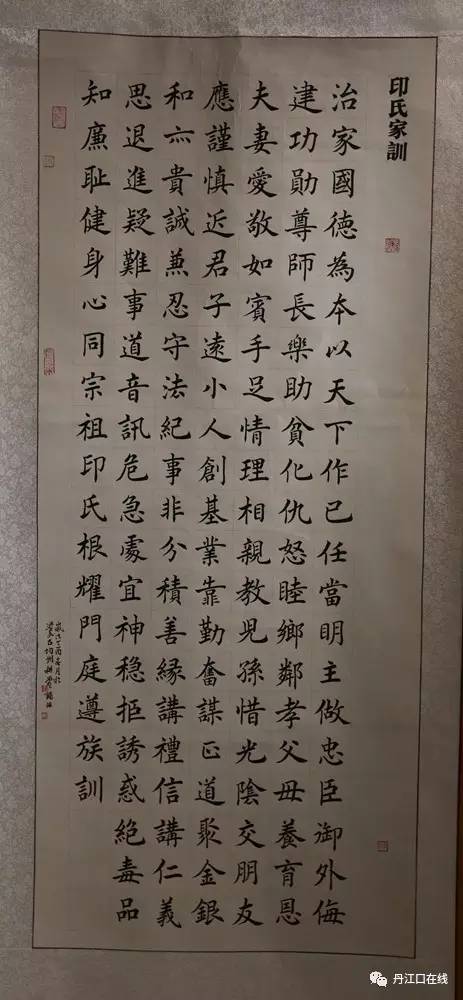 印氏家訓
治家國德為本以天下作已任當明主做忠臣御外侮
建功勛尊師長樂助貧化仇怒睦鄉鄰孝父母養育恩
夫妻愛敬如賓手足情理相親教児孫惜光陰交朋友
應謹慎近君子遠小人創基業靠勤奮謀正道聚金銀
和亦貴誠兼忍守法紀事非分積善緣講禮信講仁義
思退進疑難事道音訊危急處宜神稳拒誘惑絕毒品
知廉耻健身心同宗祖印氏根耀門庭遵族訓
歲次丁酉
丹江口在线